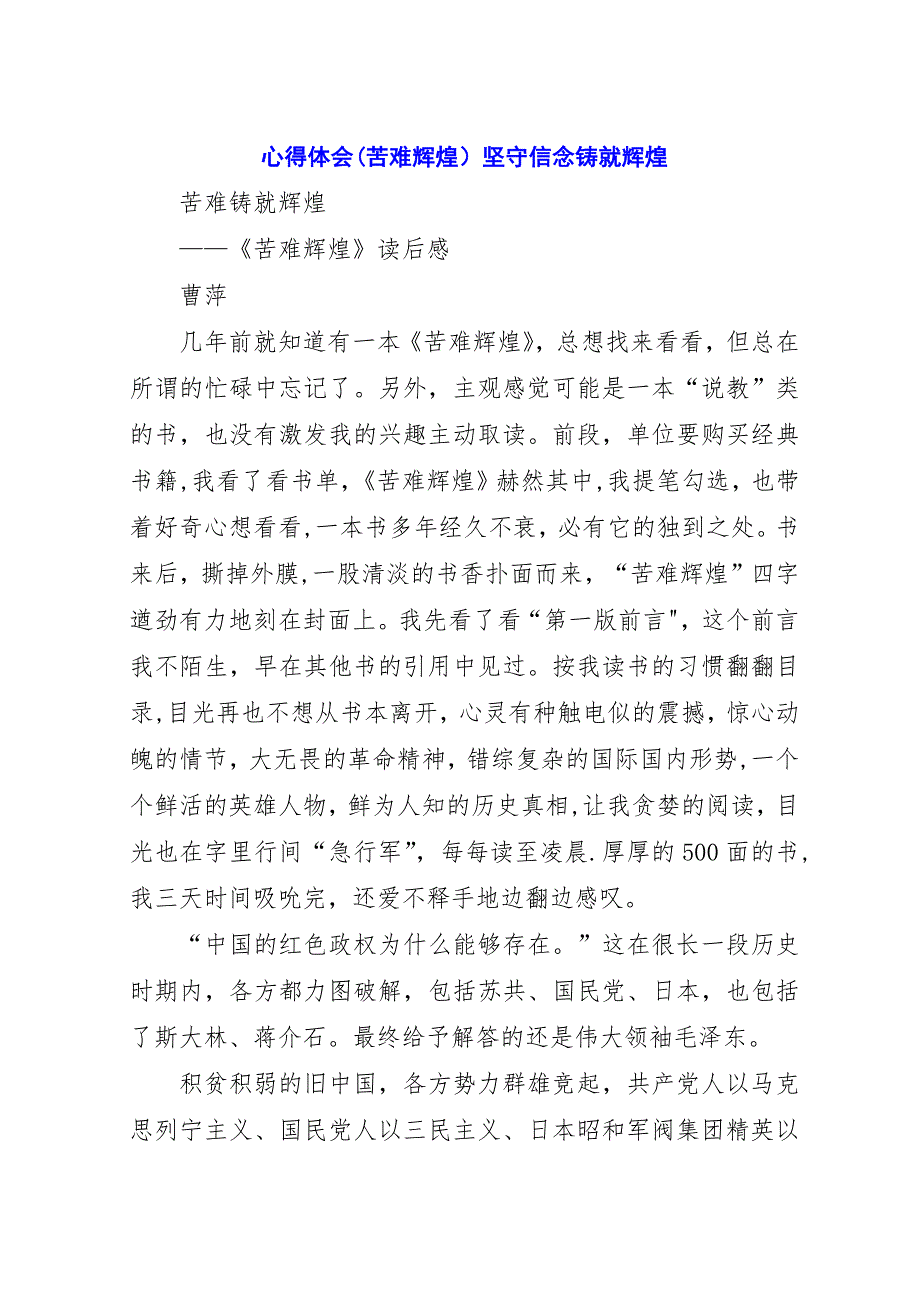 心得体会(苦难辉煌）坚守信念铸就辉煌
苦难铸就辉煌
——《苦难辉煌》读后感
曹萍
几年前就知道有一本《苦难辉煌》，总想找来看看，但总在
所谓的忙碌中忘记了。另外，主观感觉可能是一本“说教”类
的书，也没有激发我的兴趣主动取读。前段，单位要购买经典
书籍,我看了看书单，《苦难辉煌》赫然其中,我提笔勾选，也带
着好奇心想看看,一本书多年经久不衰，必有它的独到之处。书
来后，撕掉外膜,一股清淡的书香扑面而来，“苦难辉煌”四字
遒劲有力地刻在封面上。我先看了看“第一版前言"，这个前言
我不陌生，早在其他书的引用中见过。按我读书的习惯翻翻目
录,目光再也不想从书本离开，心灵有种触电似的震撼，惊心动
魄的情节，大无畏的革命精神，错综复杂的国际国内形势,一个
个鲜活的英雄人物，鲜为人知的历史真相,让我贪婪的阅读，目
光也在字里行间“急行军”，每每读至凌晨.厚厚的500面的书,
我三天时间吸吮完，还爱不释手地边翻边感叹。
“中国的红色政权为什么能够存在。”这在很长一段历史
时期内，各方都力图破解，包括苏共、国民党、日本，也包括
了斯大林、蒋介石。最终给予解答的还是伟大领袖毛泽东。
积贫积弱的旧中国，各方势力群雄竞起，共产党人以马克
思列宁主义、国民党人以三民主义、日本昭和军阀集团精英以